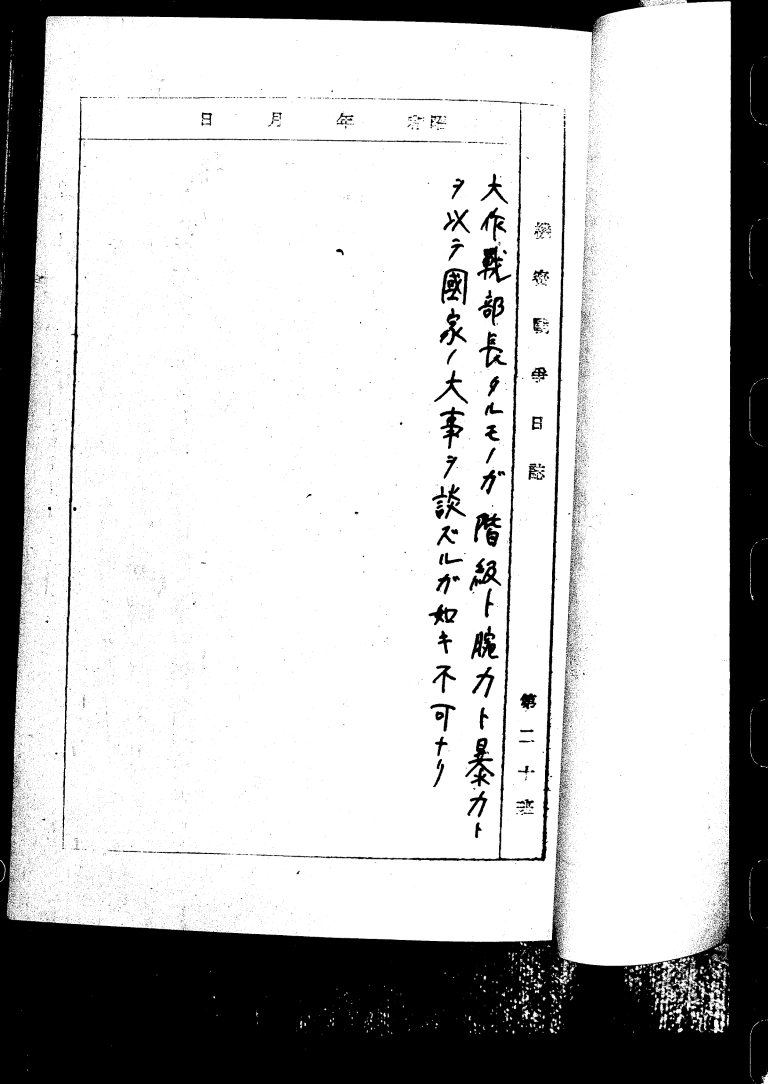 機密戰爭日誌 第二十班
昭和 年 月 日
大作戰部長タルモノガ階級ト腕力ト暴力ト
ヲ以テ國家ノ大事ヲ談ズルガ如キ不可ナリ